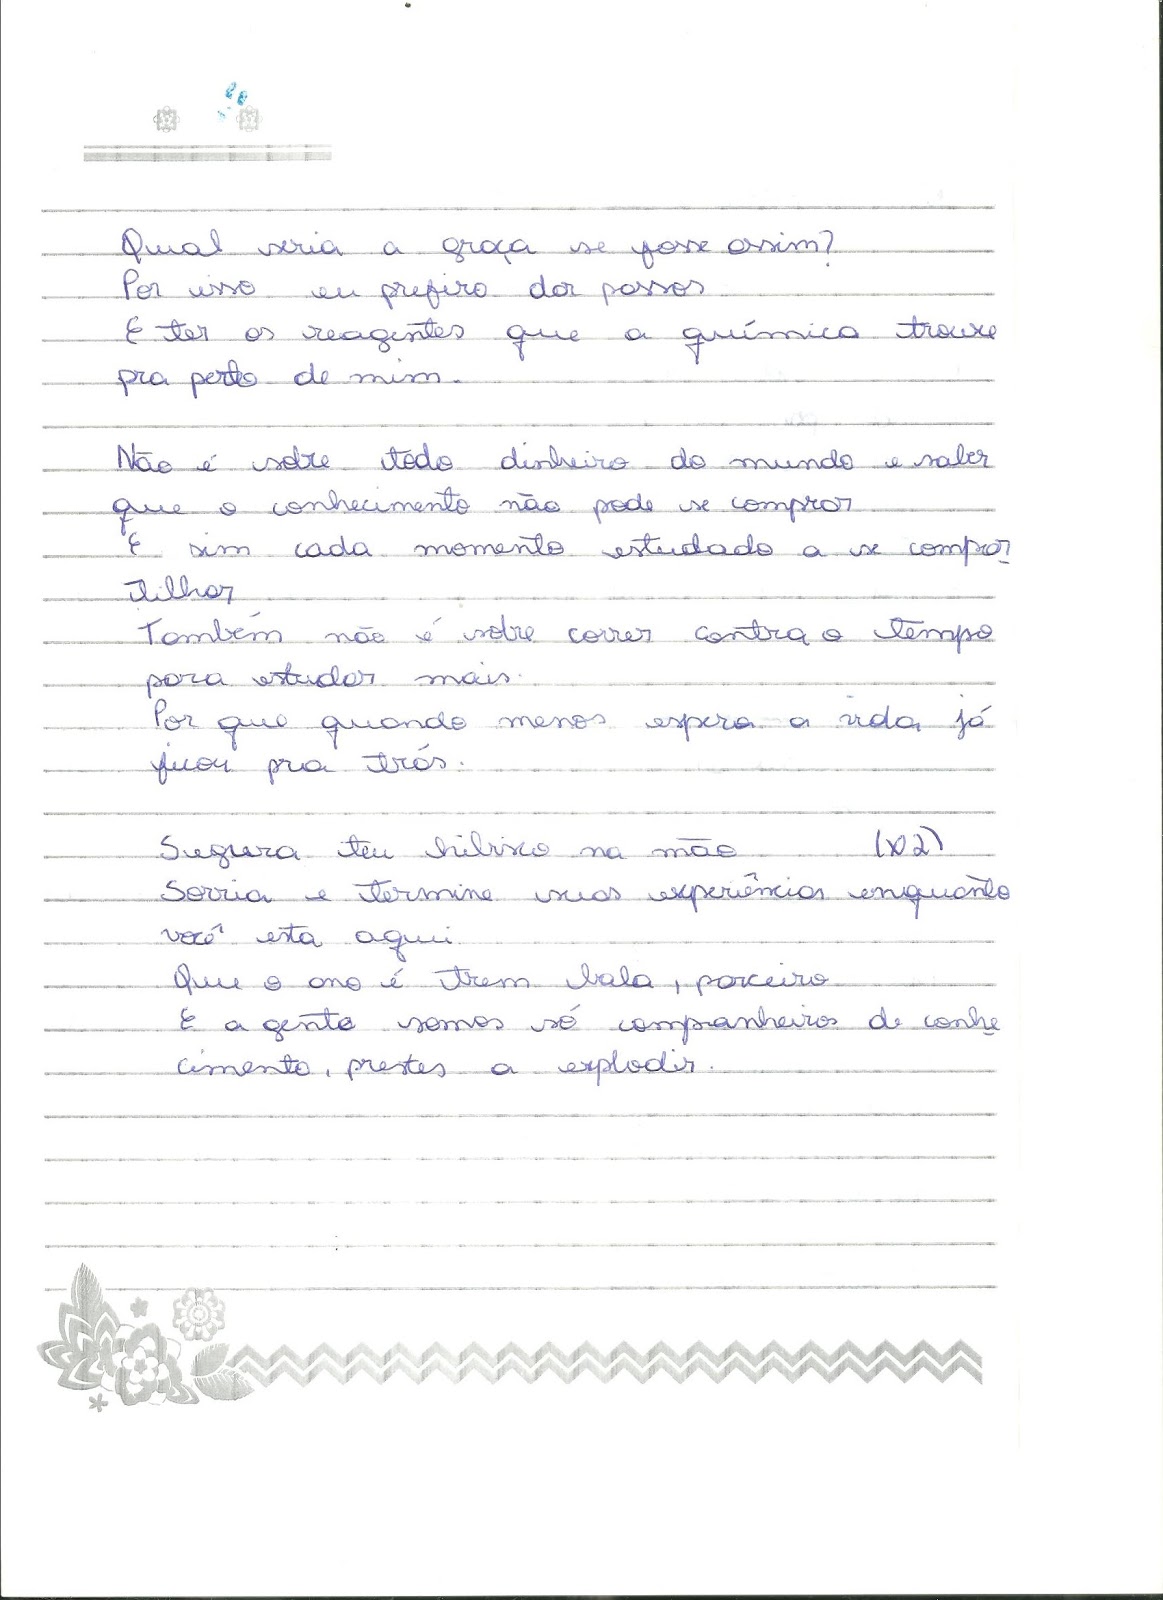 Qual seria a graça se fosse assim?
Por isso eu prefiro dar passos
E ter os reagentes que a química trouxe
pra perto de mim.
Não é sobre todo dinheiro do mundo e saber
que o conhecimento não pode se comprar
E sim cada momento estudado a se compar
tilhar
Também não é sobre correr contra o tempo
para estudar mais.
Por que quando menos espera a vida já
ficou pra trás.
Segura teu hibisco na mão (x2)
Sorria e termine suas experiências enquanto
você esta aqui.
Que o ano é trem bala, parceiro
E a gente somos só companheiros de conhe
cimento, prestes a explodir.